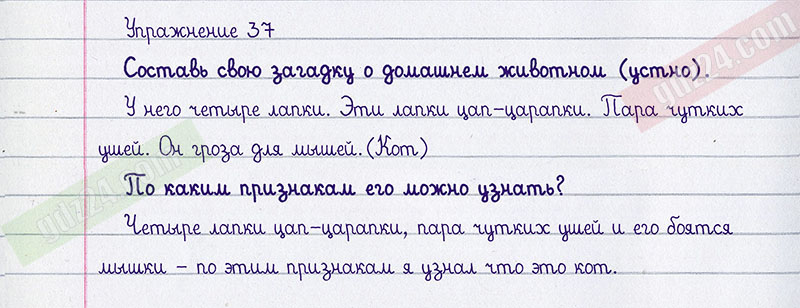 Упражнение 37
Составь свою загадку о домашнем животном (устно).
У него четыре лапки. Эти лапки цап-царапки. Пара чутких
ушей. Он гроза для мышей. (Кот)
По каким признакам его можно узнать?
Четыре лапки цап-царапки, пара чутких ушей и его боятся
мышки – по этим признакам я узнал что это кот.
gdz24.com
gdz24.com